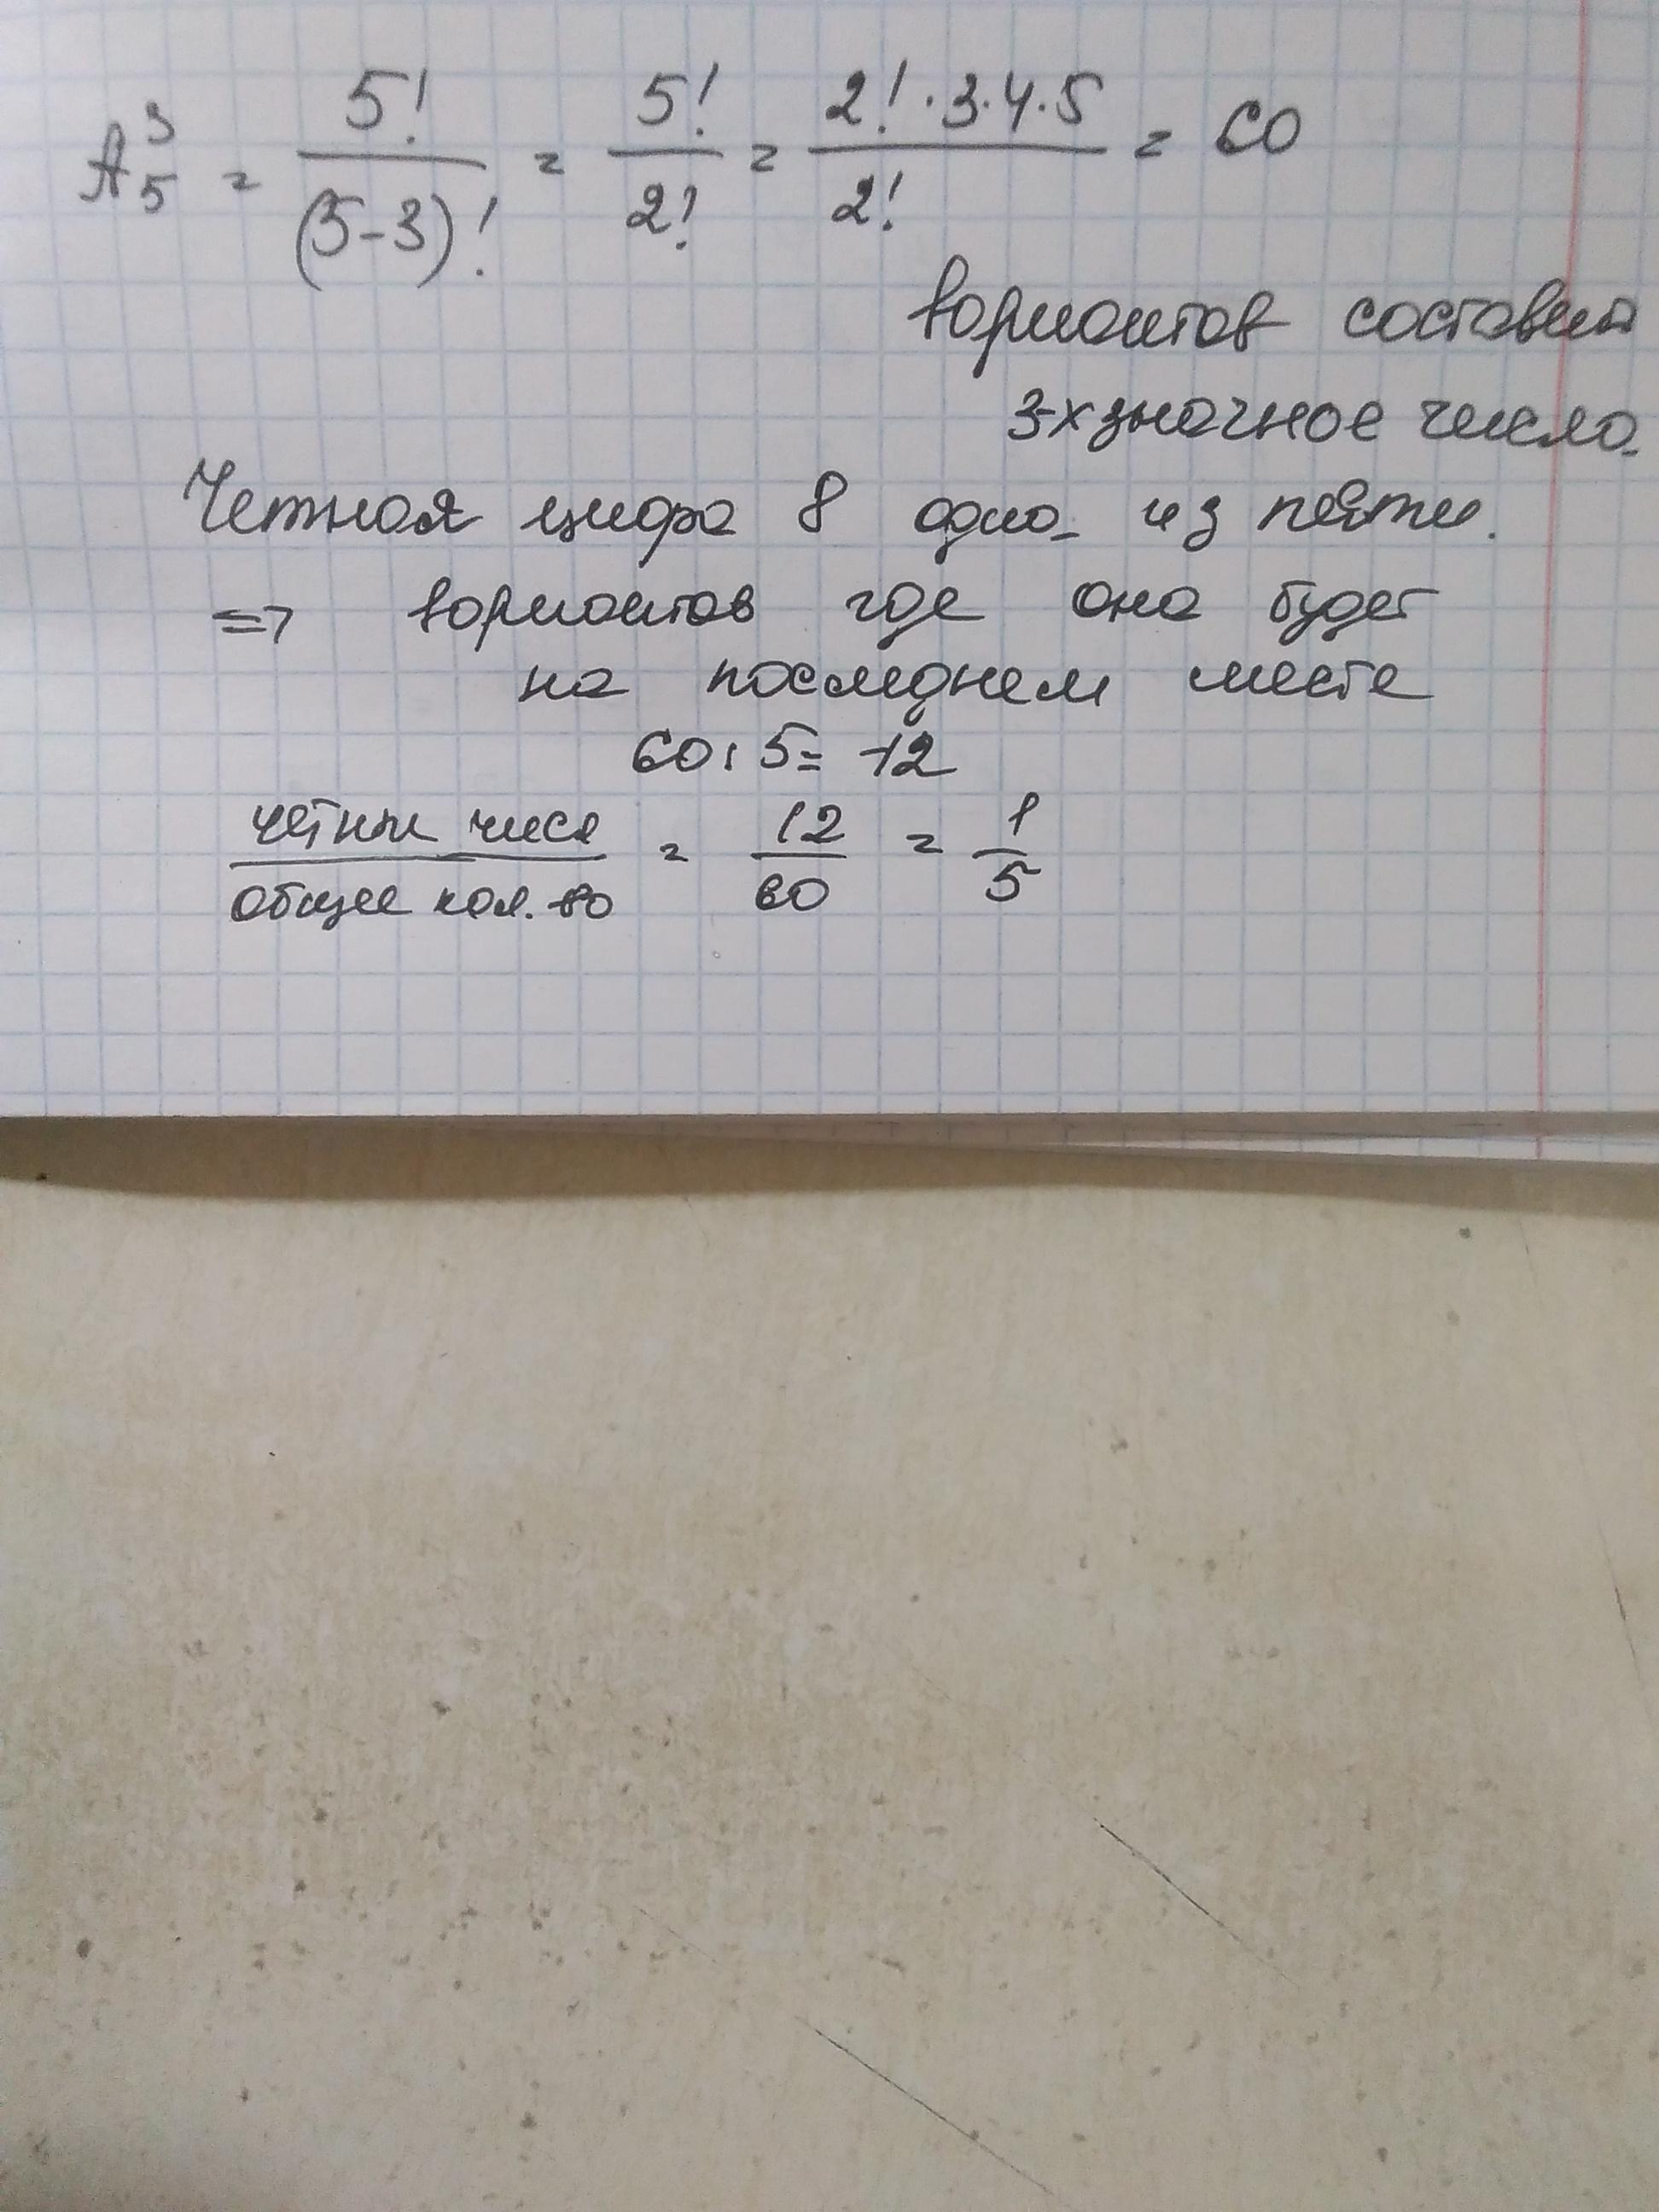 A₅³ = 5!/(5-3)! = 5!/2! = 2!·3·4·5/2! = 60
вариантов составить
3-хзначное число.
Четная цифра 8 одна из пяти.
=> вариантов где она будет
на последнем месте
60:5=12
четн чисел/общее кол.во = 12/60 = 1/5